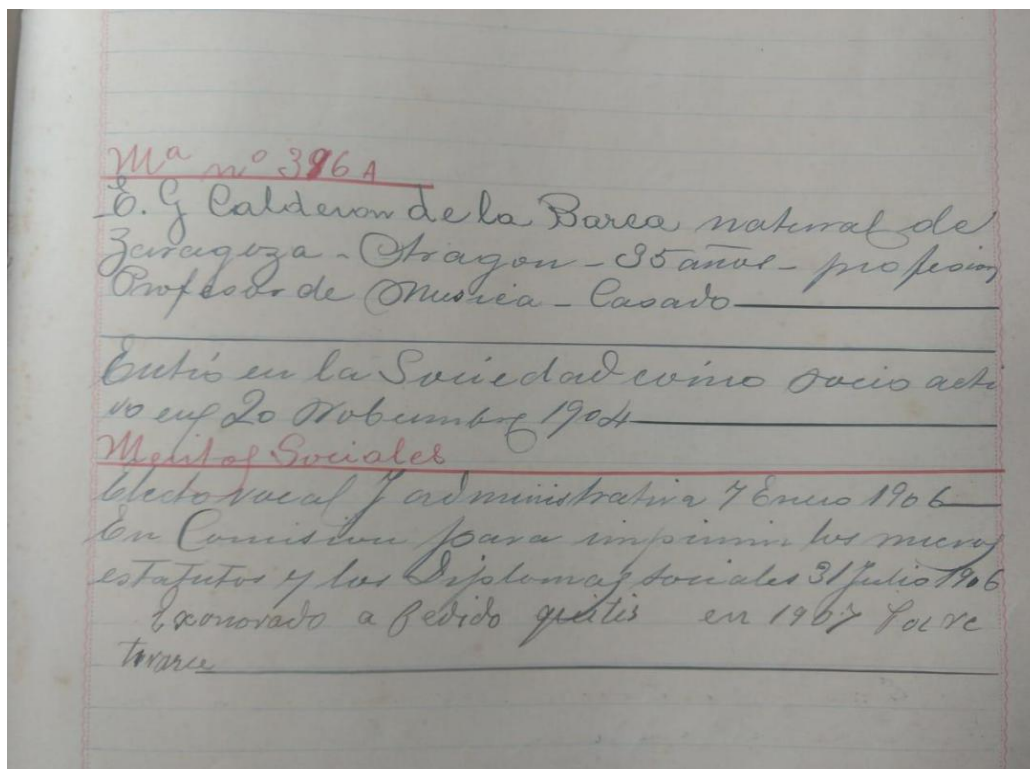 Mª nº 396 A
E. G Calderon de la Barca natural de
Zaragoza - Aragon - 35 años - profesion
Profesor de Musica - Casado
Entró en la Sociedad como socio acti
vo en 20 Nobembre 1904
Meritos Sociales
Electo vocal J administrativa 7 Enero 1906
En Comision para imprimir los nuevos
estatutos y los Diplomas sociales 31 Julio 1906
Exonorado a pedido en 1907